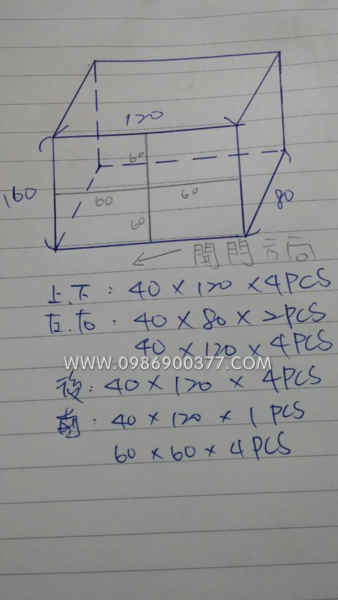 120
160
60
60
60
60
80
← 開門方向
上.下: 40×120×4PCS
左.右: 40×80×2PCS
40×120×4PCS
WWW.0986900377.COM
後: 40×120×4PCS
前: 40×120×1PCS
60×60×4PCS